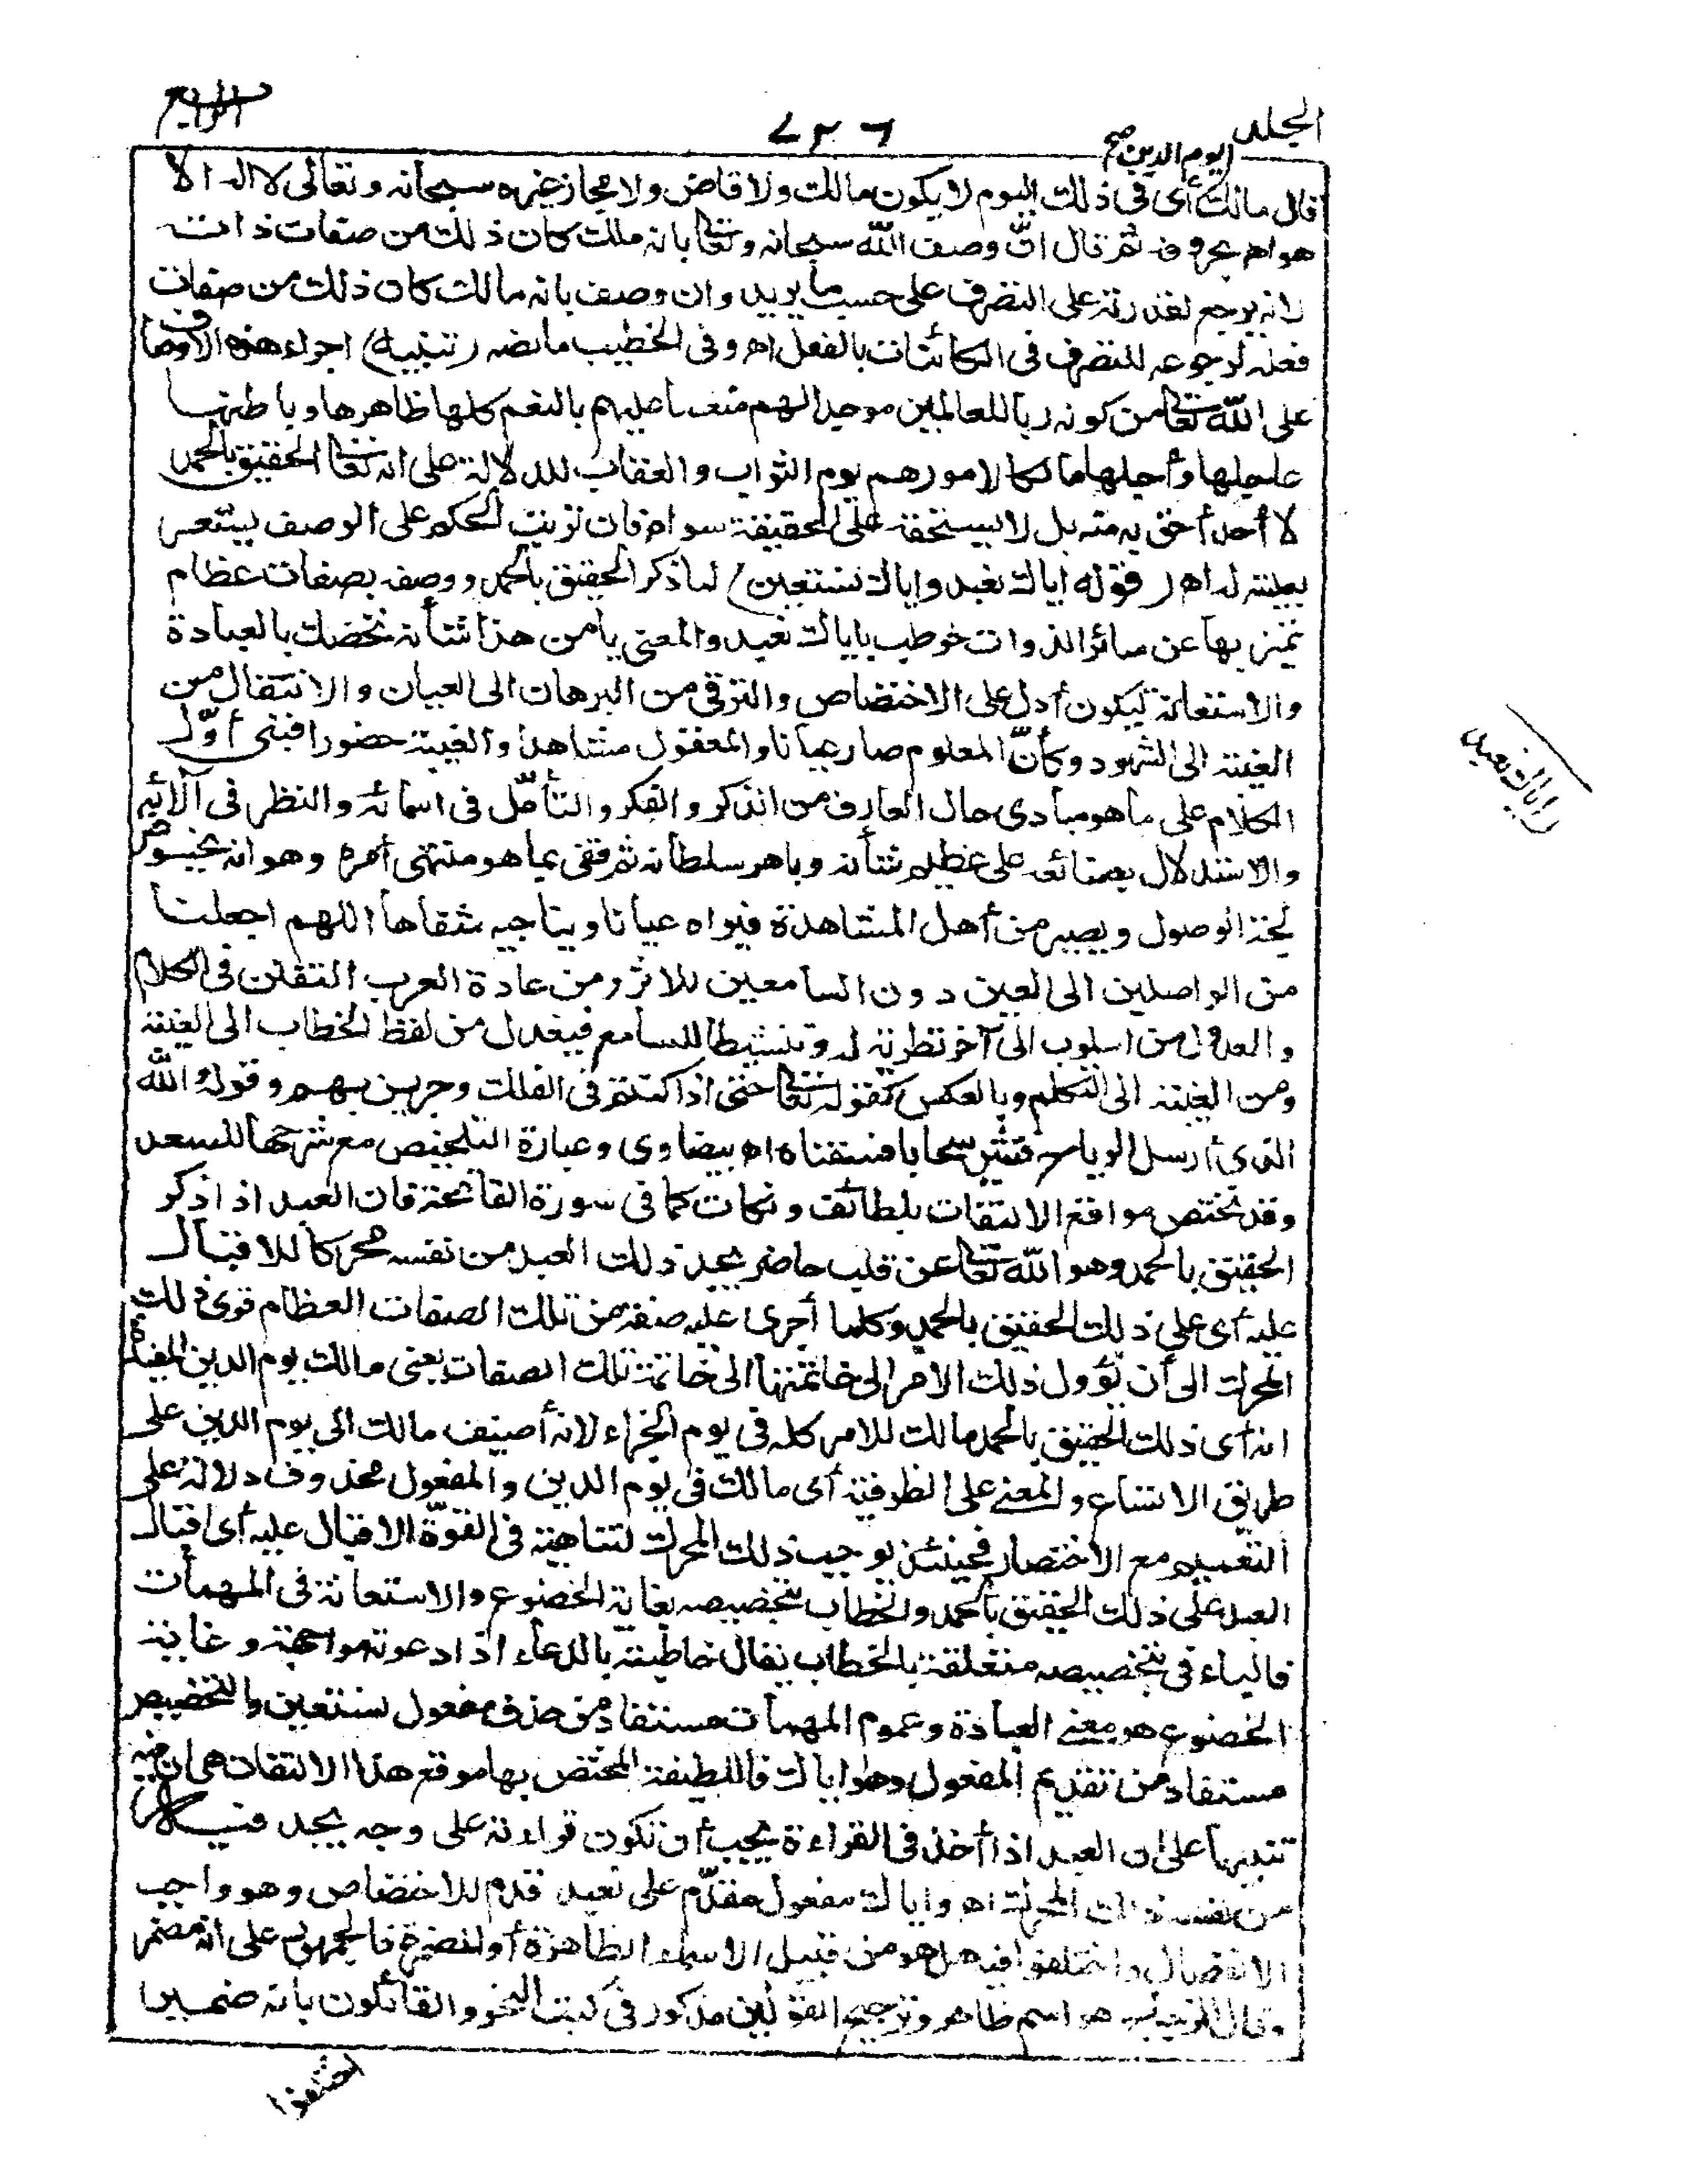 المجلد
٧٣٦
الرابع
يوم الدين صح
قال مالك أى فى ذلك اليوم لا يكون مالك ولا قاض ولا مجاز غيره سبحانه وتعالى لا اله الا
هو اه بحروفه ثم قال ان وصف الله سبحانه وتعا بانه ملك كان ذلك من صفات ذاته
لانه يرجع لقدرته على التصرف على حسب ما يريد وان وصف بانه مالك كان ذلك من صفات
فعله لرجوعه للتصرف فى الكائنات بالفعل اه وفى الخطيب ما نصه (تنبيه) اجراء هذه الأوصاف
على الله تعا من كونه ربا للعالمين موجدا لهم منعما عليهم بالنعم كلها ظاهرها وباطنها
عاجلها وأجلها مالكا لامورهم يوم الثواب والعقاب للدلالة على انه تعا الحقيق بالحمد
لا أحد أحق به منه بل لا يستحقه على الحقيقة سواه فان ترتيب الحكم على الوصف يشعر
بعليته له اه (قوله اياك نعبد واياك نستعين) لما ذكر الحقيق بالحمد ووصفه بصفات عظام
تميز بها عن سائر الذوات خوطب باياك نعبد والمعنى يا من هذا شأنه نخصك بالعبادة
والاستعانة ليكون أدل على الاختصاص والترقى من البرهان الى العيان والانتقال من
الغيبة الى الشهود وكأن المعلوم صار عيانا والمعقول مشاهدا والغيبة حضورا فبنى أوّل
الكلام على ما هو مبادى حال العارف من الذكر والفكر والتأمّل فى اسمائه والنظر فى آلائه
والاستدلال بصنائعه على عظيم شأنه وباهر سلطانه ثم قفى بما هو منتهى أمره وهو انه يخوض
لجة الوصول ويصير من أهل المشاهدة فيراه عيانا ويناجيه شفاها اللهم اجعلنا
من الواصلين الى العين دون السامعين للاثر ومن عادة العرب التفنن فى الكلام
والعدول من اسلوب الى آخر تطرية له وتنشيطا للسامع فيعدل من لفظ الخطاب الى الغيبة
ومن الغيبة الى التكلم وبالعكس كقوله تعا حتى اذا كنتم فى الفلك وجرين بهم وقوله والله
الذى أرسل الرياح فتثير سحابا فسقناه اه بيضاوى وعبارة التلخيص مع شرحها للسعد
وقد تختص مواقع الالتفات بلطائف ونكات كما فى سورة الفاتحة فان العبد اذا ذكر
الحقيق بالحمد وهو الله تعا عن قلب حاضر يجد ذلك العبد من نفسه محركا للاقبال
عليه أى على ذلك الحقيق بالحمد وكلما أجرى عليه صفة من تلك الصفات العظام قوى ذلك
المحرك الى أن يؤول ذلك الامر الى خاتمتها الى خاتمة تلك الصفات يعنى مالك يوم الدين المفيدة
انه أى ذلك الحقيق بالحمد مالك للامر كله فى يوم الجزاء لانه أضيف مالك الى يوم الدين على
طريق الاتساع والمعنى على الظرفية أى مالك فى يوم الدين والمفعول محذوف دلالة على
التعميم مع الاختصار فحينئذ يوجب ذلك المحرك لتناهيه فى القوّة الاقبال عليه أى اقبال
العبد على ذلك الحقيق بالحمد والخطاب بتخصيصه بغاية الخضوع والاستعانة فى المهمات
فالباء فى بتخصيصه متعلقة بالخطاب يقال خاطبته بالدعاء اذا دعوته مواجهة وغاية
الخضوع هو معنى العبادة وعموم المهمات مستفاد من حذف مفعول نستعين والتخصيص
مستفاد من تقديم المفعول وهو اياك فاللطيفة المختص بها موقع هذا الالتفات هى ان فيه
تنبيها على ان العبد اذا أخذ فى القراءة يجب أن تكون قراءته على وجه يجد
من نفسه ذلك المحرك اه واياك مفعول مقدّم على نعبد قدم للاختصاص وهو واجب
الانفصال واختلفوا فيه هل هو من قبيل الاسماء الظاهرة أو المضمرة فالجمهور على انه مضمر
وقال الزجاج هو اسم ظاهر وترجيح القولين مذكور فى كتب النحو والقائلون بانه ضمير
اختلفوا
اياك نعبد